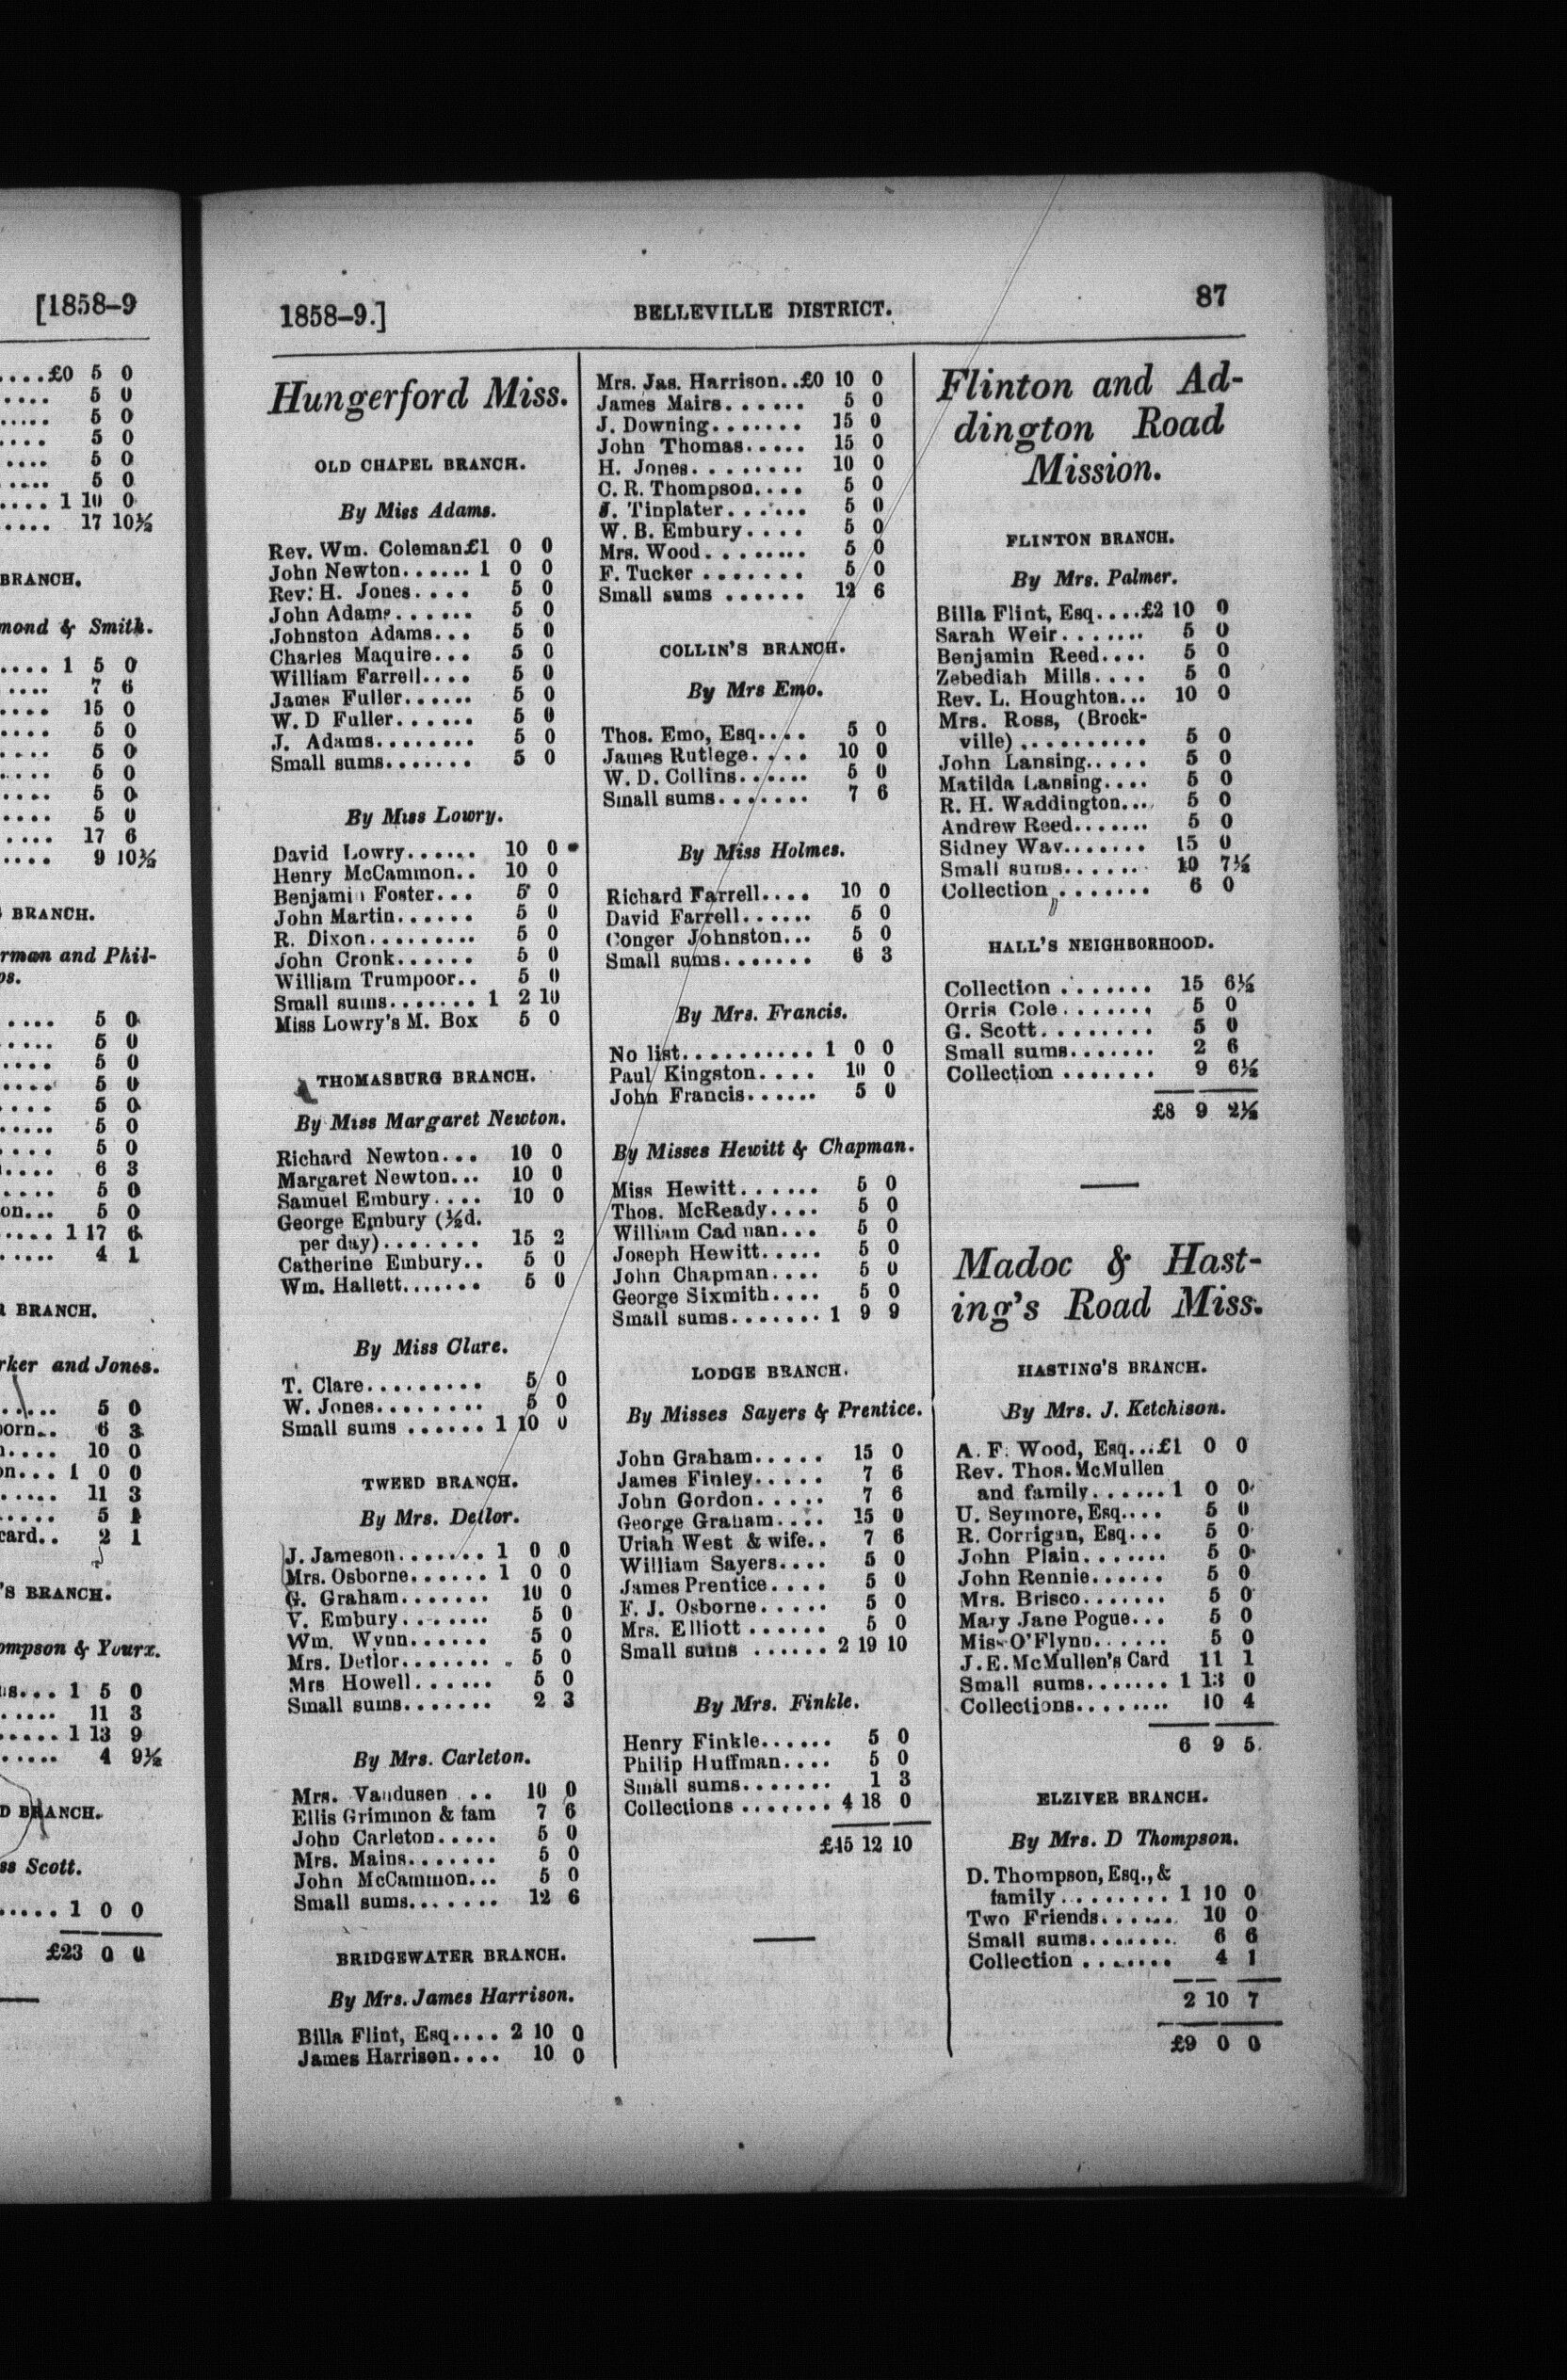 [1858-9
....£0 5 0
.... 5 0
..... 5 0
.... 5 0
.... 5 0
..... 5 0
.... 1 10 0
..... 17 10½
BRANCH.
mond & Smith.
.... 1 5 0
.... 7 6
.... 15 0
.... 5 0
.... 5 0
.... 5 0
.... 5 0
.... 5 0
.... 17 6
.... 9 10½
BRANCH.
rman and Phil-
ps.
.... 5 0
..... 5 0
.... 5 0
.... 5 0
.... 5 0
..... 5 0
.... 5 0
.... 6 3
.... 5 0
on... 5 0
..... 1 17 6
..... 4 1
BRANCH.
rker and Jones.
..... 5 0
orn.. 6 3
.... 10 0
on... 1 0 0
..... 11 3
..... 5 1
card.. 2 1
'S BRANCH.
ompson & Yourx.
us... 1 5 0
..... 11 3
..... 1 13 9
..... 4 9½
D BRANCH.
ss Scott.
..... 1 0 0
£23 0 0
1858-9.]
BELLEVILLE DISTRICT.
87
Hungerford Miss.
OLD CHAPEL BRANCH.
By Miss Adams.
Rev. Wm. Coleman£1 0 0
John Newton...... 1 0 0
Rev. H. Jones.... 5 0
John Adams...... 5 0
Johnston Adams... 5 0
Charles Maquire... 5 0
William Farrell.... 5 0
James Fuller...... 5 0
W. D Fuller...... 5 0
J. Adams........ 5 0
Small sums....... 5 0
By Miss Lowry.
David Lowry...... 10 0
Henry McCammon.. 10 0
Benjami Foster... 5 0
John Martin...... 5 0
R. Dixon......... 5 0
John Cronk...... 5 0
William Trumpoor.. 5 0
Small sums....... 1 2 10
Miss Lowry's M. Box 5 0
THOMASBURG BRANCH.
By Miss Margaret Newton.
Richard Newton... 10 0
Margaret Newton... 10 0
Samuel Embury.... 10 0
George Embury (½d.
per day)....... 15 2
Catherine Embury.. 5 0
Wm. Hallett....... 5 0
By Miss Clare.
T. Clare......... 5 0
W. Jones........ 5 0
Small sums ...... 1 10 0
TWEED BRANCH.
By Mrs. Detlor.
J. Jameson....... 1 0 0
Mrs. Osborne...... 1 0 0
G. Graham....... 10 0
V. Embury....... 5 0
Wm. Wynn...... 5 0
Mrs. Detlor....... 5 0
Mrs Howell...... 5 0
Small sums....... 2 3
By Mrs. Carleton.
Mrs. Vandusen .. 10 0
Ellis Grimmon & fam 7 6
John Carleton..... 5 0
Mrs. Mains....... 5 0
John McCammon... 5 0
Small sums....... 12 6
BRIDGEWATER BRANCH.
By Mrs. James Harrison.
Billa Flint, Esq.... 2 10 0
James Harrison.... 10 0
Mrs. Jas. Harrison..£0 10 0
James Mairs...... 5 0
J. Downing....... 15 0
John Thomas..... 15 0
H. Jones........ 10 0
C. R. Thompson.... 5 0
J. Tinplater...... 5 0
W. B. Embury.... 5 0
Mrs. Wood........ 5 0
F. Tucker ....... 5 0
Small sums ...... 12 6
COLLIN'S BRANCH.
By Mrs Emo.
Thos. Emo, Esq.... 5 0
James Rutlege.... 10 0
W. D. Collins...... 5 0
Small sums....... 7 6
By Miss Holmes.
Richard Farrell.... 10 0
David Farrell...... 5 0
Conger Johnston... 5 0
Small sums....... 6 3
By Mrs. Francis.
No list.......... 1 0 0
Paul Kingston.... 10 0
John Francis...... 5 0
By Misses Hewitt & Chapman.
Miss Hewitt...... 5 0
Thos. McReady.... 5 0
William Cadnan... 5 0
Joseph Hewitt..... 5 0
John Chapman.... 5 0
George Sixmith.... 5 0
Small sums....... 1 9 9
LODGE BRANCH.
By Misses Sayers & Prentice.
John Graham..... 15 0
James Finley..... 7 6
John Gordon..... 7 6
George Graham.... 15 0
Uriah West & wife.. 7 6
William Sayers.... 5 0
James Prentice.... 5 0
F. J. Osborne..... 5 0
Mrs. Elliott ...... 5 0
Small sums ...... 2 19 10
By Mrs. Finkle.
Henry Finkle...... 5 0
Philip Huffman.... 5 0
Small sums....... 1 3
Collections ....... 4 18 0
£45 12 10
Flinton and Ad-
dington Road
Mission.
FLINTON BRANCH.
By Mrs. Palmer.
Billa Flint, Esq....£2 10 0
Sarah Weir....... 5 0
Benjamin Reed.... 5 0
Zebediah Mills.... 5 0
Rev. L. Houghton... 10 0
Mrs. Ross, (Brock-
ville).......... 5 0
John Lansing..... 5 0
Matilda Lansing.... 5 0
R. H. Waddington... 5 0
Andrew Reed....... 5 0
Sidney Way....... 15 0
Small sums...... 10 7½
Collection ....... 6 0
HALL'S NEIGHBORHOOD.
Collection ....... 15 6½
Orris Cole....... 5 0
G. Scott........ 5 0
Small sums....... 2 6
Collection ....... 9 6½
£8 9 2½
Madoc & Hast-
ing's Road Miss.
HASTING'S BRANCH.
By Mrs. J. Ketchison.
A. F. Wood, Esq...£1 0 0
Rev. Thos. McMullen
and family...... 1 0 0
U. Seymore, Esq.... 5 0
R. Corrigan, Esq... 5 0
John Plain....... 5 0
John Rennie...... 5 0
Mrs. Brisco....... 5 0
Mary Jane Pogue... 5 0
Miss O'Flynn...... 5 0
J. E. McMullen's Card 11 1
Small sums....... 1 13 0
Collections........ 10 4
6 9 5
ELZIVER BRANCH.
By Mrs. D Thompson.
D. Thompson, Esq., &
family......... 1 10 0
Two Friends...... 10 0
Small sums....... 6 6
Collection ....... 4 1
2 10 7
£9 0 0